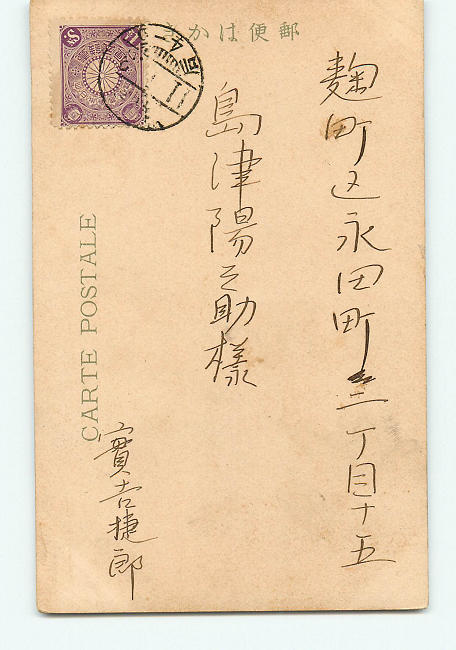 郵便はかき
麹町区永田町二丁目十五
島津陽之助様
實吉捷郎
CARTE POSTALE